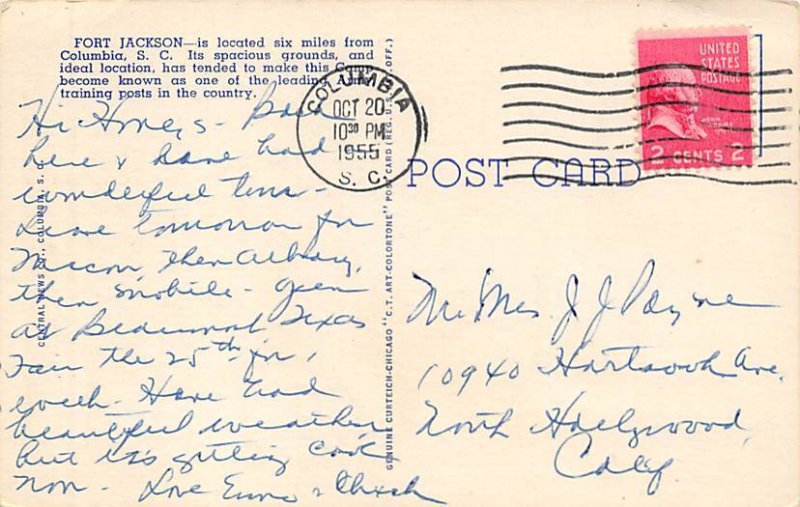 FORT JACKSON—is located six miles from
Columbia, S. C. Its spacious grounds, and
ideal location, has tended to make this Camp
become known as one of the leading Army
training posts in the country.
Hi Honeys - Back
here & have had
wonderful time -
Leave tomorrow for
Macon, then Albany,
then Mobile - Open
at Beaumont Texas
Fair the 25th for
week - Have had
beautiful weather,
but it's getting cool
now - Love &
CENTRAL NEWS CO., COLUMBIA, S. C.
GENUINE CURTEICH-CHICAGO "C.T. ART-COLORTONE" POST CARD (REG. U.S. PAT. OFF.)
COLUMBIA
OCT 20
10 30 PM
1955
S. C.
POST CARD
UNITED
STATES
POSTAGE
JOHN ADAMS
2 CENTS 2
Mr Mrs J J Payne
10940 Hartsook Ave.
North Hollywood
Calif